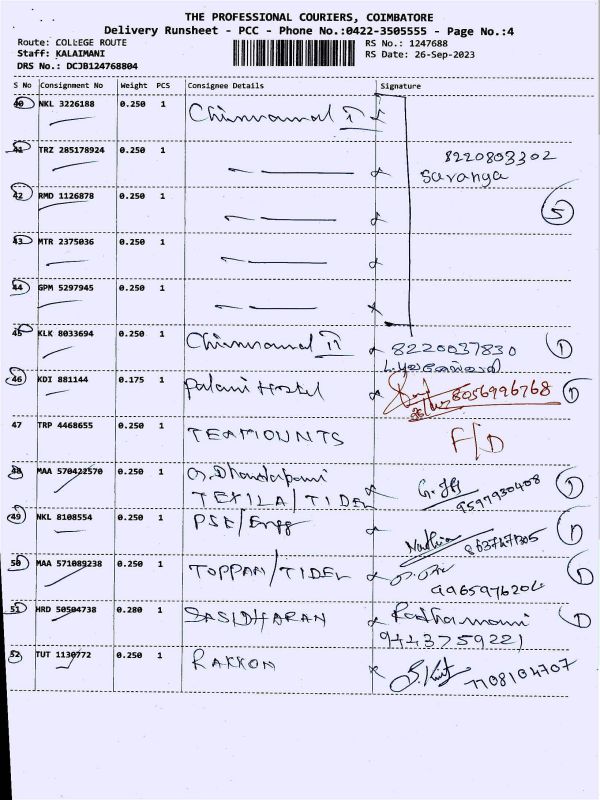 THE PROFESSIONAL COURIERS, COIMBATORE
Delivery Runsheet - PCC - Phone No.:0422-3505555 - Page No.:4
Route: COLLEGE ROUTE RS No.: 1247688
Staff: KALAIMANI RS Date: 26-Sep-2023
DRS No.: DCJB124768804
S No Consignment No Weight PCS Consignee Details Signature
40 NKL 3226188 0.250 1
41 TRZ 285178924 0.250 1 8220803302
Saranya
42 RMD 1126878 0.250 1 5
43 MTR 2375036 0.250 1
44 GPM 5297945 0.250 1
45 KLK 8033694 0.250 1 8220037830 1
46 KDI 881144 0.175 1 Palani Hostel 8056996768 1
47 TRP 4468655 0.250 1 TEAMOUNTS F/D
48 MAA 570422570 0.250 1 G. Dhandapani
TEXILA/TIDEL 9597930408 1
49 NKL 8108554 0.250 1 PSG/Engg 1
50 MAA 571089238 0.250 1 TOPPAN/TIDEL 9965976204 1
51 HRD 50504738 0.280 1 SASIDHARAN Radhamani 1
9443759221
52 TUT 1130772 0.250 1 RAKKON 7708104707